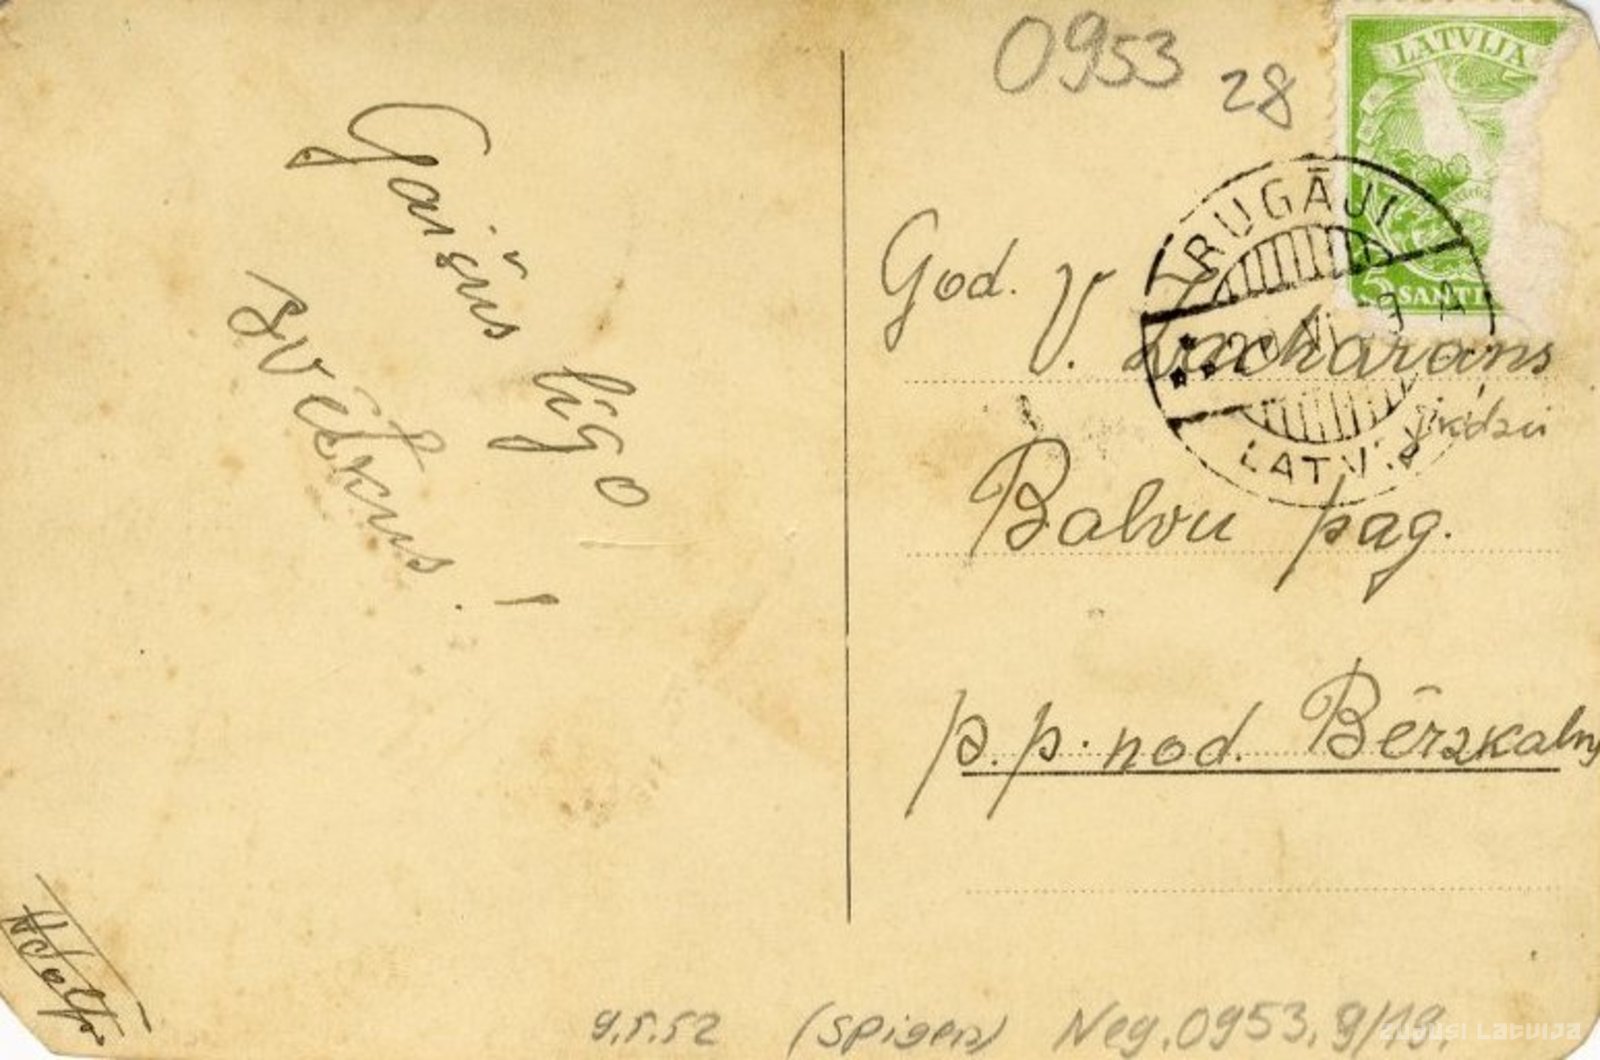 0953
28
LATVIJA
SANTI
RUGĀJI
LATVIJA
Gaišus līgo
svētkus!
God. V. Zacharans
jkdzu
Balvu pag.
p.p. nod. Bērzkalns
9.5.52 (Spigen) Neg. 0953. 9/19.
zudusi Latvija